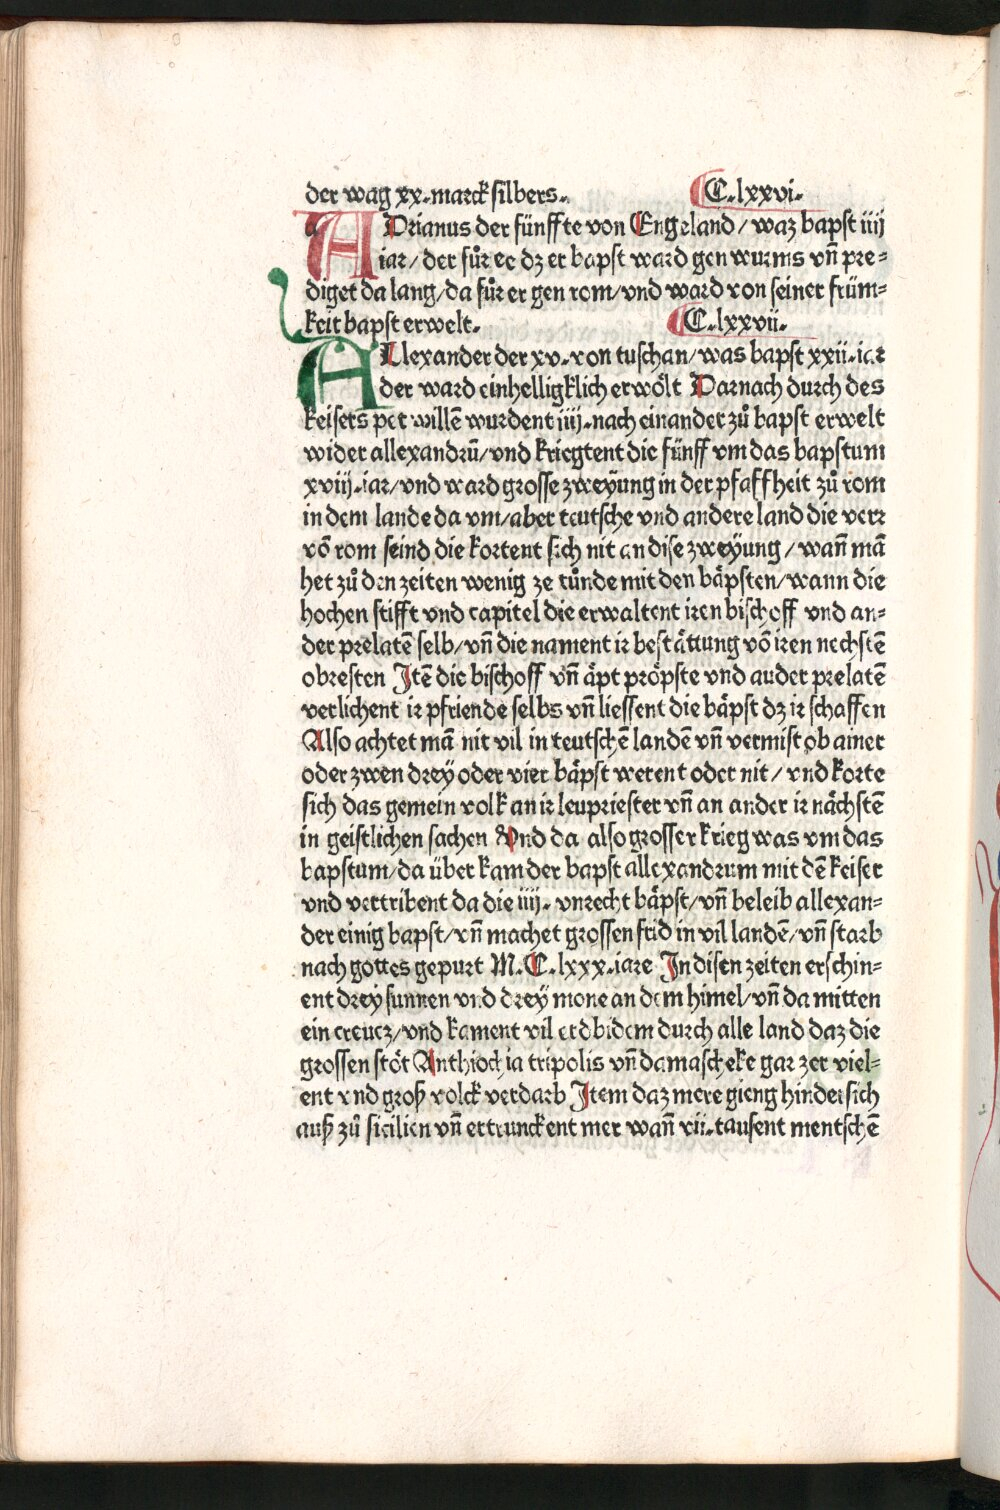 der wag xx.marck silbers. C.lxxvi.
ADrianus der fünffte von Engeland/waz bapst iiij
iar/der fůr ee dz er bapst ward gen wurms vn̄ pre⸗
diget da lang/da fůr er gen rom/vnd ward von seiner früm⸗
keit bapst erwelt. C.lxxvii.
ALlexander der xv.von tuschan/was bapst xxii.iar
der ward einhelligklich erwölt Darnach durch des
keisers pet willē wurdent iiij.nach einander zů bapst erwelt
wider allexandrū/vnd kriegtent die fünff vm das bapstum
xviij.iar/vnd ward grosse zweyung in der pfaffheit zů rom
in dem lande da vm/aber teutsche vnd andere land die verr
vō rom seind die kortent sich nit an dise zweyung/wan̄ mā
het zů den zeiten wenig ze tůnde mit den bäpsten/wann die
hochen stifft vnd capitel die erwaltent iren bischoff vnd an⸗
der prelatē selb/vn̄ die nament ir bestättung vō iren nechstē
obresten Itē die bischoff vn̄ äpt pröpste vnd auder prelatē
verlichent ir pfriende selbs vn̄ liessent die bäpst dz ir schaffen
Also achtet mā nit vil in teutschē landē vn̄ vermist ob ainer
oder zwen drey oder vier bäpst werent oder nit/vnd korte
sich das gemein volk an ir leupriester vn̄ an ander ir nächstē
in geistlichen sachen Vnd da also grosser krieg was vm das
bapstum/da über kam der bapst allexandrum mit dē keiser
vnd vertribent da die iiij.vnrecht bäpst/vn̄ beleib allexan⸗
der einig bapst/vn̄ machet grossen frid in vil landē/vn̄ starb
nach gottes gepurt M.C.lxxx.iare In disen zeiten erschin⸗
ent drey sunnen vnd drey mone an dem himel/vn̄ da mitten
ein creucz/vnd kament vil erdbidem durch alle land daz die
grossen stöt Anthiochia tripolis vn̄ damascheke gar zer viel⸗
ent vnd groß volck verdarb Item daz mere gieng hinder sich
auß zů sicilien vn̄ ertrunckent mer wan̄ xii.tausent mentschē